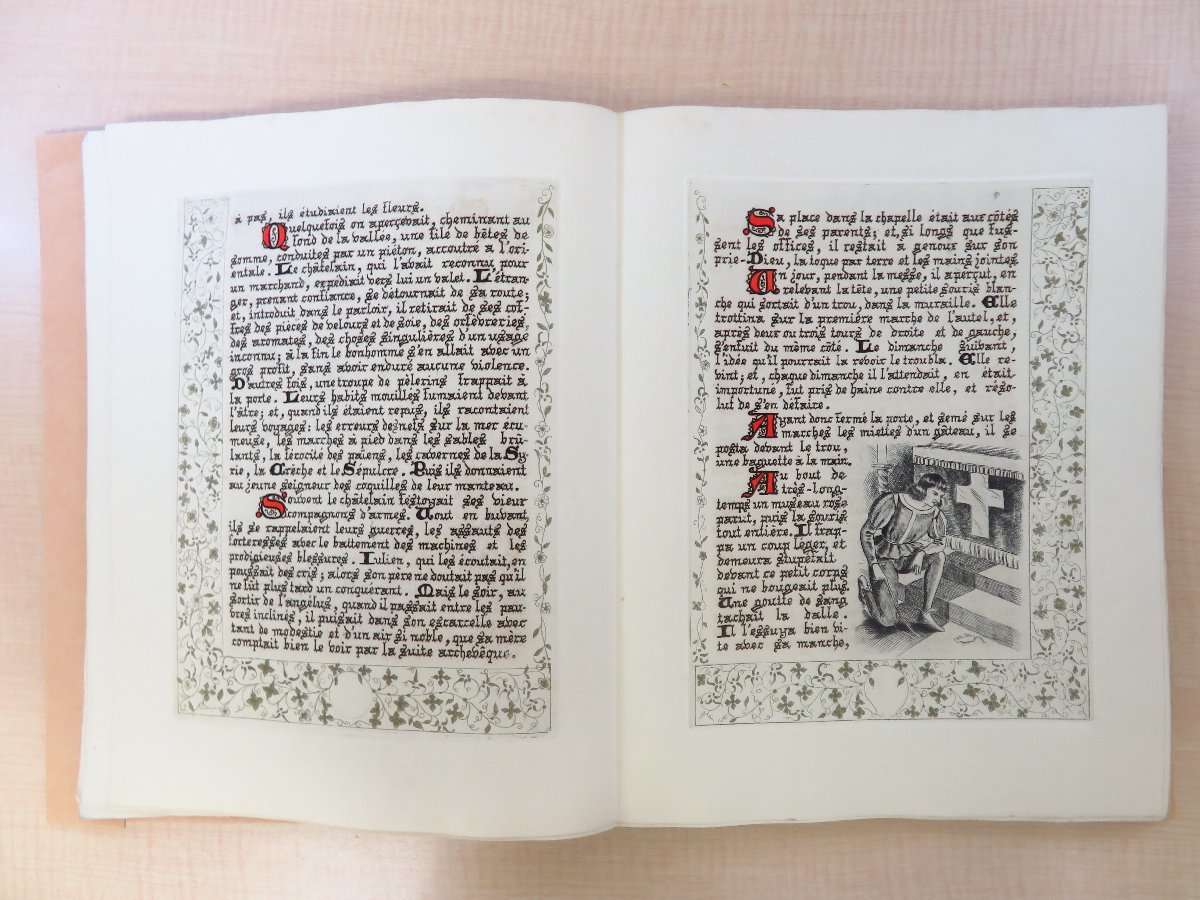 à pas, ils étudiaient les fleurs.
Quelquefois on apercevait, cheminant au
fond de la vallée, une file de bêtes de
somme, conduites par un piéton, accoutré à l'ori-
entale. Le châtelain, qui l'avait reconnu pour
un marchand, expédiait vers lui un valet. L'étran-
ger, prenant confiance, se détournait de sa route;
et, introduit dans le parloir, il retirait de ses cof-
fres des pièces de velours et de soie, des orfèvreries,
des aromates, des choses singulières d'un usage
inconnu; à la fin le bonhomme s'en allait avec un
gros profit, sans avoir enduré aucune violence.
D'autres fois, une troupe de pèlerins frappait à
la porte. Leurs habits mouillés fumaient devant
l'âtre; et, quand ils étaient repus, ils racontaient
leurs voyages: les erreurs des nefs sur la mer écu-
meuse, les marches à pied dans les sables brû-
lants, la férocité des païens, les cavernes de la Sy-
rie, la Crèche et le Sépulcre. Puis ils donnaient
au jeune seigneur des coquilles de leur manteau.
Souvent le châtelain festoyait ses vieux
compagnons d'armes. Tout en buvant,
ils se rappelaient leurs guerres, les assauts des
forteresses avec le battement des machines et les
prodigieuses blessures. Julien, qui les écoutait, en
poussait des cris; alors son père ne doutait pas qu'il
ne fût plus tard un conquérant. Mais le soir, au
sortir de l'angélus, quand il passait entre les pau-
vres inclinés, il puisait dans son escarcelle avec
tant de modestie et d'un air si noble, que sa mère
comptait bien le voir par la suite archevêque.
Sa place dans la chapelle était aux côtés
de ses parents; et, si longs que fus-
sent les offices, il restait à genoux sur son
prie-Dieu, la toque par terre et les mains jointes.
Un jour, pendant la messe, il aperçut, en
relevant la tête, une petite souris blan-
che qui sortait d'un trou, dans la muraille. Elle
trottina sur la première marche de l'autel, et,
après deux ou trois tours de droite et de gauche,
s'enfuit du même côté. Le dimanche suivant,
l'idée qu'il pourrait la revoir le troubla. Elle re-
vint; et, chaque dimanche il l'attendait, en était
importuné, fut pris de haine contre elle, et réso-
lut de s'en défaire.
Ayant donc fermé la porte, et semé sur les
marches les miettes d'un gâteau, il se
posta devant le trou,
une baguette à la main.
Au bout de
très-long-
temps un museau rose
parut, puis la souris
tout entière. Il frap-
pa un coup léger, et
demeura stupéfait
devant ce petit corps
qui ne bougeait plus.
Une goutte de sang
tachait la dalle.
Il l'essuya bien vi-
te avec sa manche,